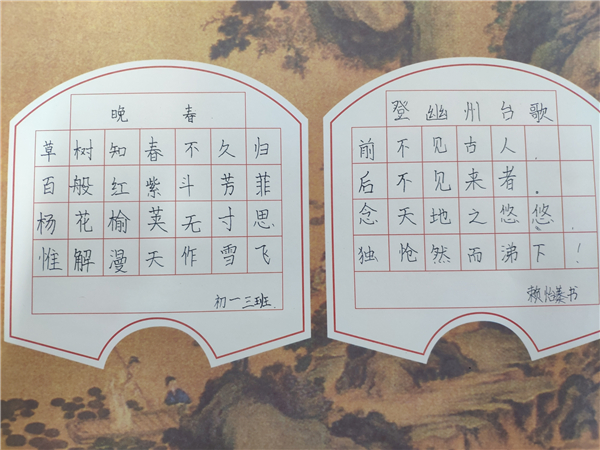 晚春
草树知春不久归
百般红紫斗芳菲
杨花榆英无寸思
惟解漫天作雪飞
初一三班
登幽州台歌
前不见古人,
后不见来者。
念天地之悠悠,
独怆然而沸下!
赖怡蓁书